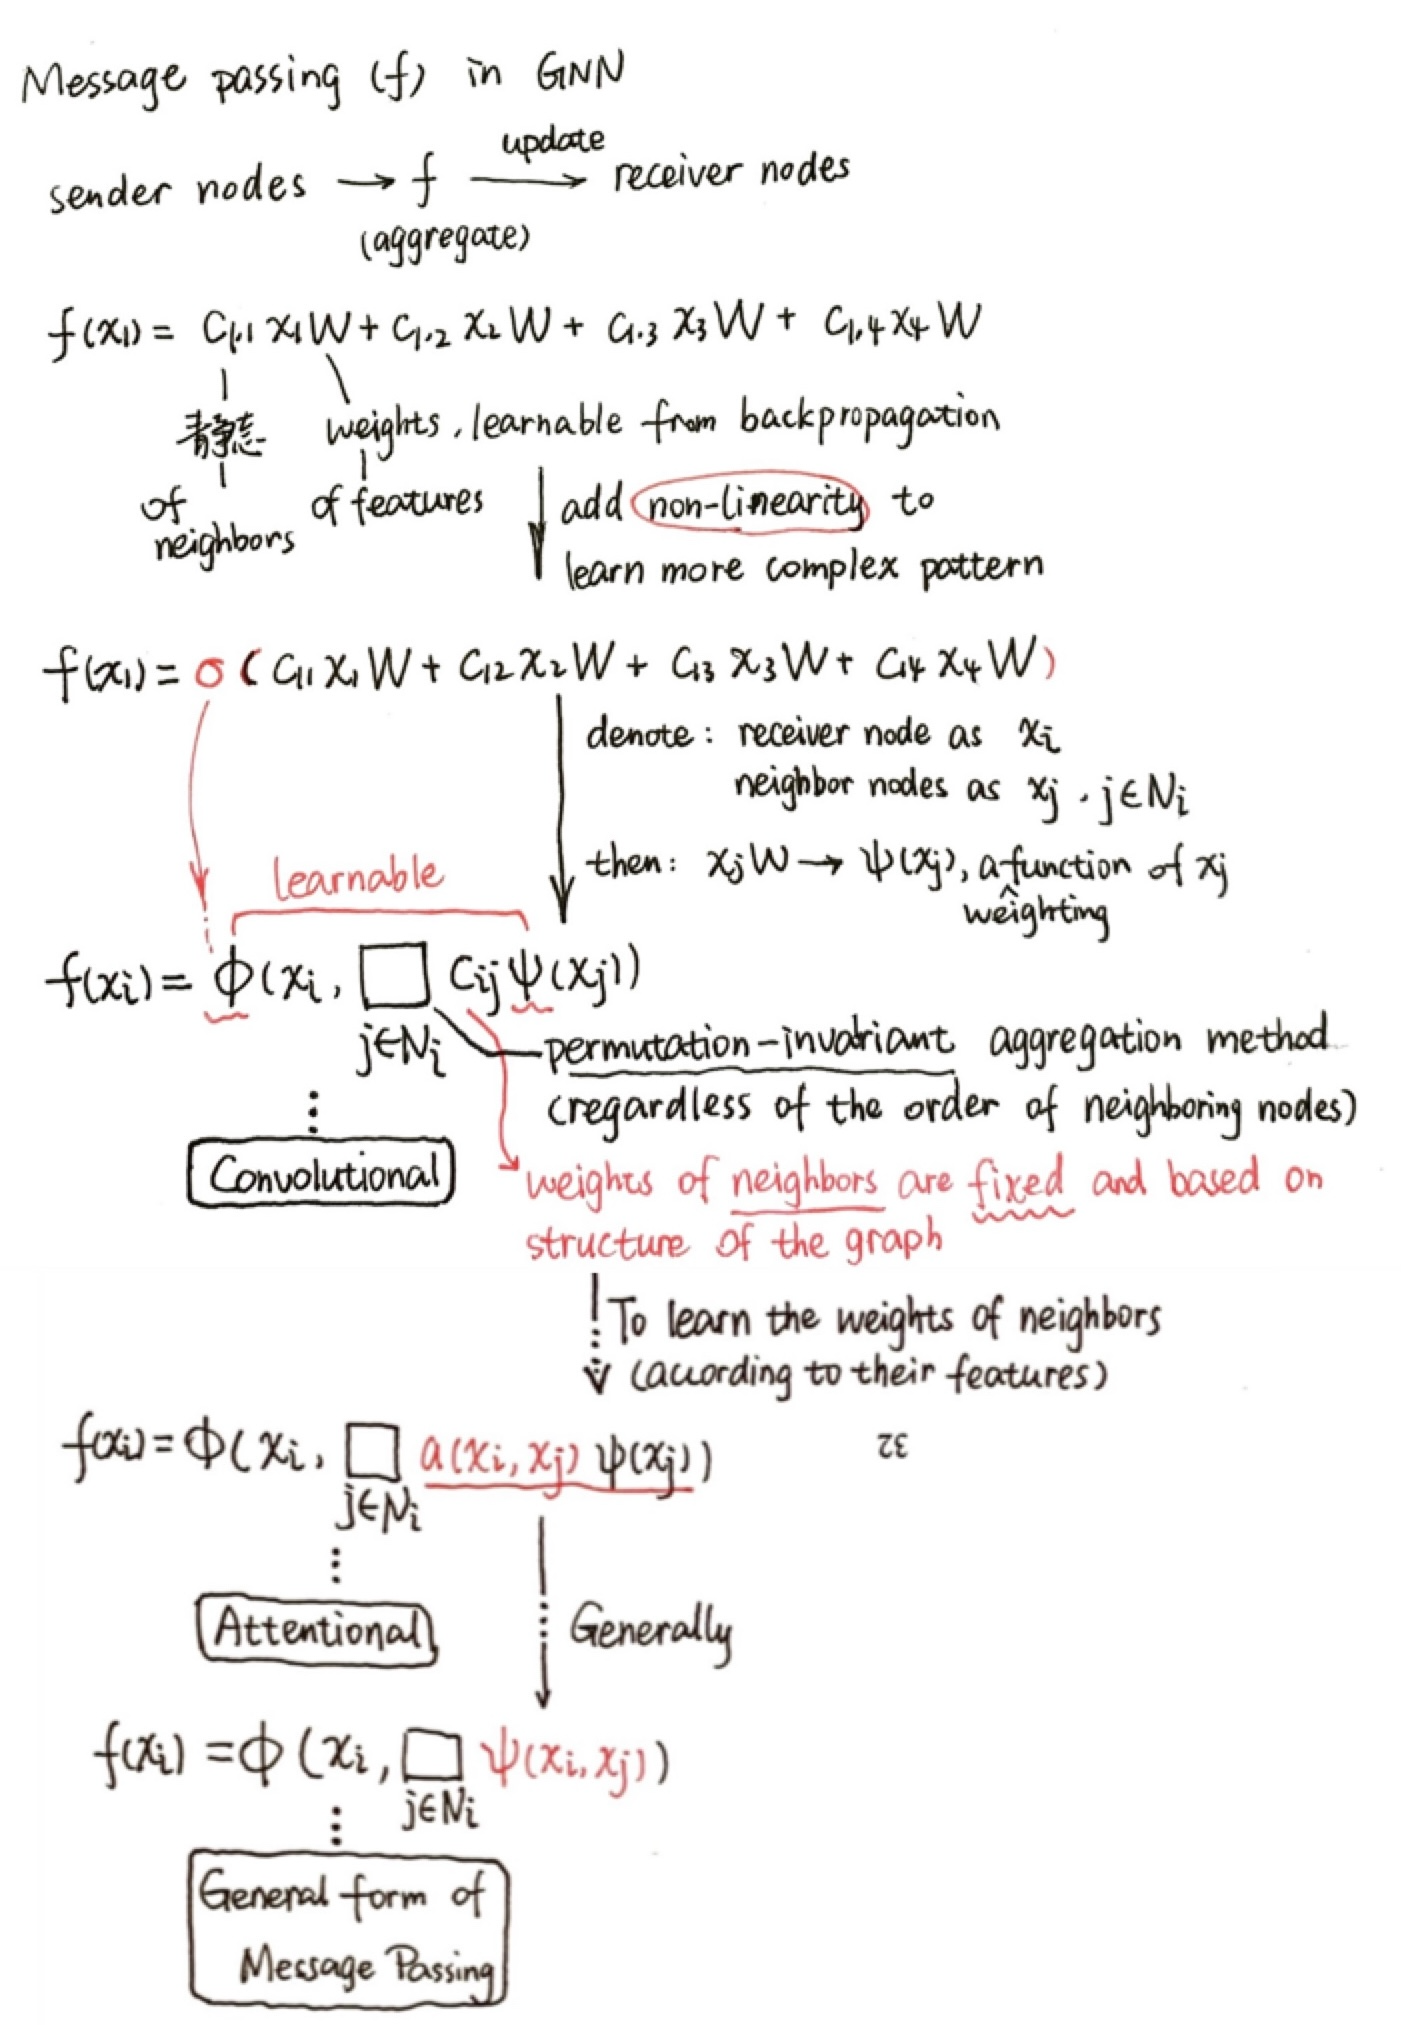 Message passing (f) in GNN
update
sender nodes → f → receiver nodes
(aggregate)
f(x₁) = C₁,₁ x₁W + C₁,₂ x₂W + C₁,₃ x₃W + C₁,₄ x₄W
静态 weights, learnable from backpropagation
of neighbors
of features
add non-linearity to
learn more complex pattern
f(x₁) = σ ( C₁₁ x₁W + C₁₂ x₂W + C₁₃ x₃W + C₁₄ x₄W )
denote: receiver node as xᵢ
neighbor nodes as xⱼ, j∈Nᵢ
then: xⱼW → ψ(xⱼ), a function of xⱼ
weighting
learnable
f(xᵢ) = ϕ(xᵢ, □ Cᵢⱼ ψ(xⱼ))
j∈Nᵢ
permutation-invariant aggregation method
(regardless of the order of neighboring nodes)
Convolutional
weights of neighbors are fixed and based on
structure of the graph
To learn the weights of neighbors
(according to their features)
f(xᵢ) = ϕ(xᵢ, □ a(xᵢ, xⱼ) ψ(xⱼ))
j∈Nᵢ
32
Attentional
Generally
f(xᵢ) = ϕ(xᵢ, □ ψ(xᵢ, xⱼ))
j∈Nᵢ
General form of
Message Passing